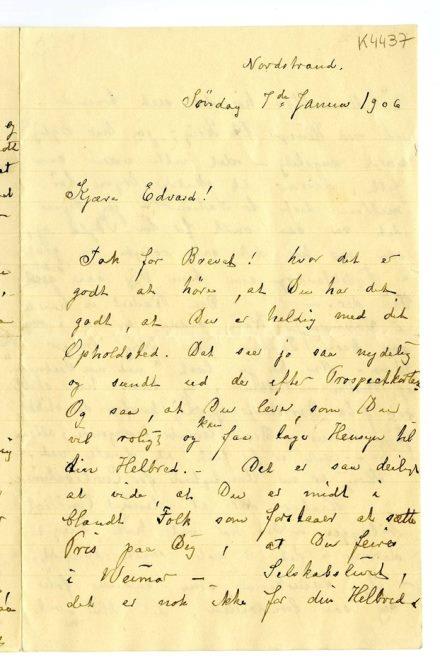 K4437
Nordstrand.
Søndag 7de Januar 1906
Kjære Edvard!
Tak for Brevet! hvor det er
godt at høre, at Du har det
godt, at Du er heldig med dit
Opholdsted. Det seer jo saa nydelig
og sundt ud der efter Prospectkortet
Og saa, at Du lever, som Du
vil roligt og kan faa tage Hensyn til
din Helbred. – Det er saa deiligt
at vide, at Du er midt i
blandt Folk som forstaaer at sætte
Pris paa Dig, at Du feires
i Weimar – Selskabslivet,
det er nok ikke for din Helbred